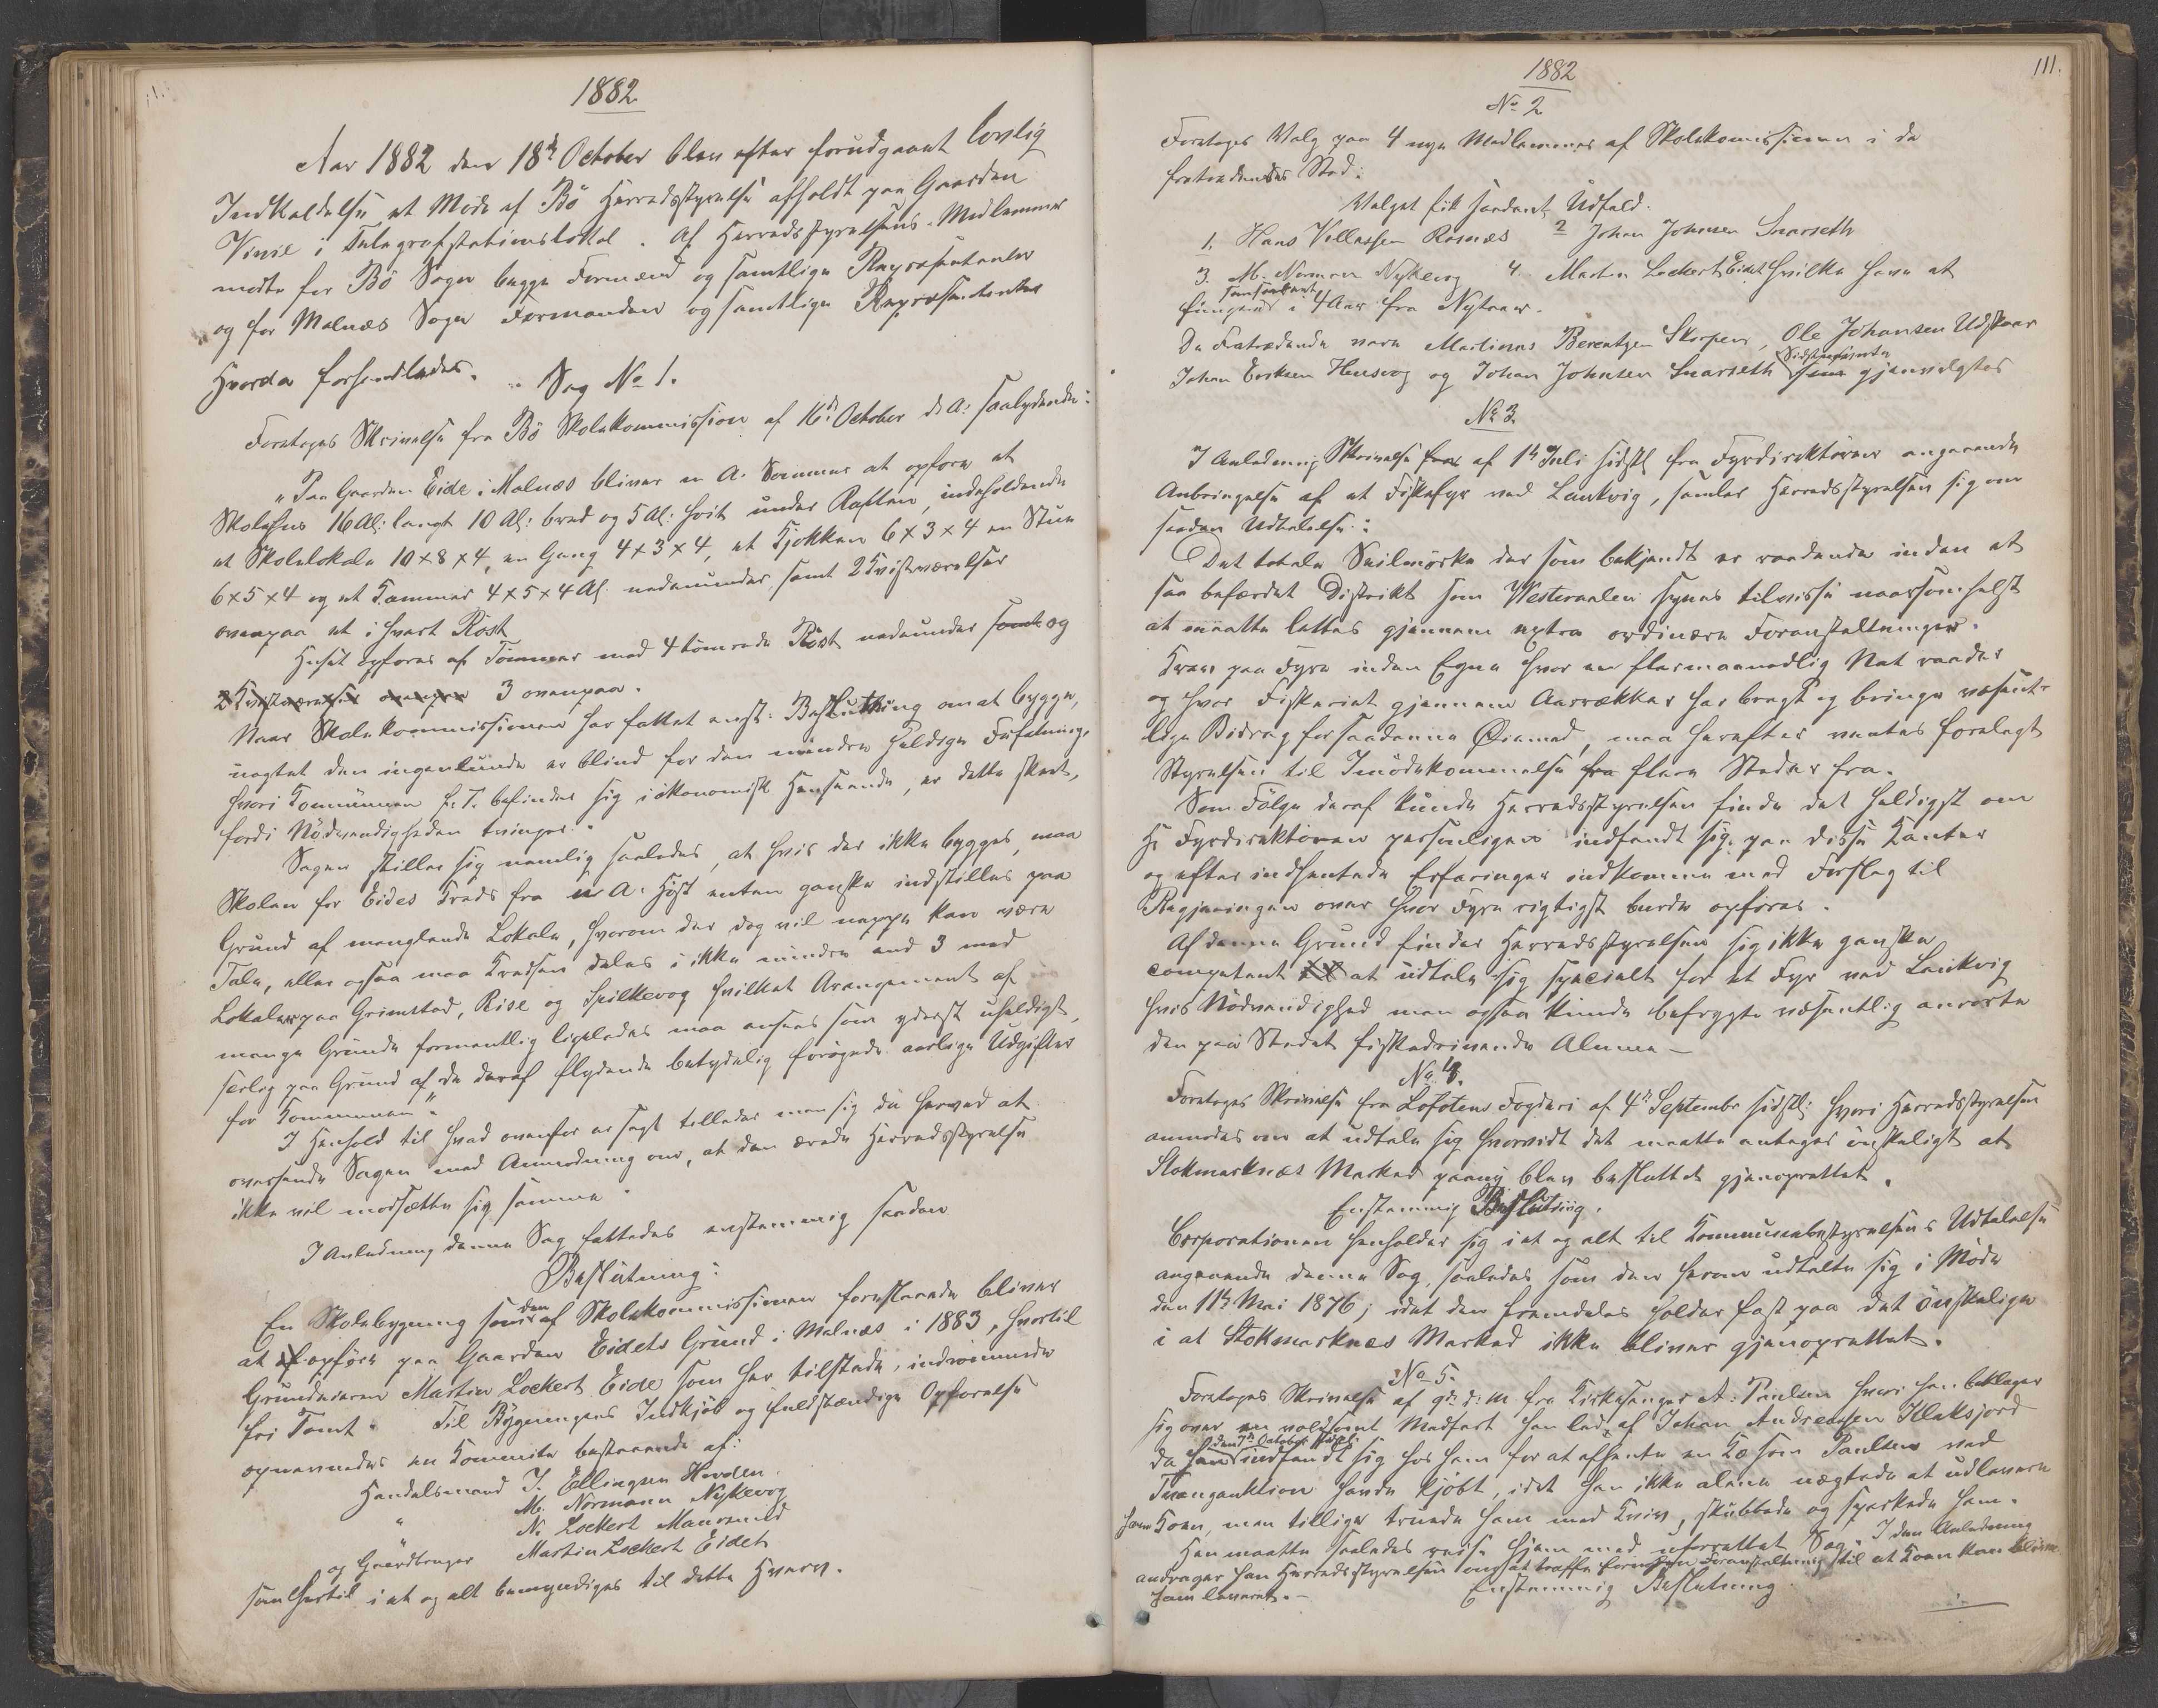 1882
Aar 1882 den 18de October blev efter forudgaaet lovlig
Indkaldelse et Møde af Bö Herredsstyrelse afholdt paa Gaarden
Vinje i Telegrafstationslokal. Af Herredsstyrelsens Medlemmer
mødte for Bö Sogn begge Formænd og samtlige Repræsentanter
og for Malnæs Sogn Formanden og samtlige Repræsentanter
Hvorda forhandledes.
Sag No 1.
Foretoges Skrivelse fra Bö Skolekommission af 16de October d. A. saalydende:
"Paa Gaarden Eide i Malnæs bliver n. A. Sommer at opføre et
Skolehus 16 Al: langt 10 Al: bred og 5 Al: høit under Raften, indeholdende
et Skolelokale 10 x 8 x 4, en Gang 4 x 3 x 4, et Kjøkken 6 x 3 x 4 en Stue
6 x 5 x 4 og et Kammer 4 x 5 x 4 Al. nedenunder, samt 2 Kvistværelser
ovenpaa et i hvert Röst
Huset opføres af Tømmer med 4 tömrede Röst nedenunder samt og
2 Kvistværelser ovenpaa 3 ovenpaa.
Naar Skolekommissionen har fattet enst. Beslutning om at bygge,
uagtet den ingenlunde er blind for den mindre heldige Forfatning,
hvori Kommunen f. T. befinder sig i økonomisk Henseende, er dette skeet,
fordi Nødvendigheden tvinger.
Sagen stiller sig nemlig saaledes, at hvis der ikke bygges, maa
Skolen for Eides Kreds fra n A. Høst enten ganske indstilles paa
Grund af manglende Lokale, hvorom der dog vel neppe kan være
Tale, eller ogsaa maa Kredsen deles i ikke mindre end 3 med
Lokaler paa Grimstad, Rise og Spilkevog hvilket Arangement af
mange Grunde formentlig ligeledes maa ansees som yderst uheldigt,
særlig paa Grund af de deraf flydende betydelig forøgede aarlige Udgifter
for Kommunen".
I Henhold til hvad ovenfor er sagt tillader man sig da herved at
oversende Sagen med Anmodning om, at den ærede Herredsstyrelse
ikke vil modsætte sig samme.
I Anledning denne Sag fattedes enstemmig saadan
Beslutning:
En Skolebygning som den af Skolekommissionen foreslaaede bliver
at opføre paa Gaarden Eidets Grund i Malnæs i 1883, hvortil
Grundeieren Martin Lockert Eide som her tilstede, indrømmede
fri Tomt. Til Bygningens Indkjøb og fuldstændige Opførelse
opnævnedes en Kommite bestaaende af:
Handelsmand J. Ellingsen Hovden.
" M. Normann Nykevog
N. Lockert Maurnæs
og Gaardbruger Martin Lockert Eidet
som hertil i et og alt bemyndiges til dette Hverv.
1882
111.
No 2
Foretoges Valg paa 4 nye Medlemmer af Skolekomissionen i de
fratrædendes Sted:
Valget fik saadant Udfald.
1. Hans Villassen Ramnæs 2 Johan Johnsen Snarseth
3. M. Norman Nykevog 4. Martin Lockert Eidet hvilke have at
fungere i 4 Aar fra Nytaar.
De Fratrædende vare Martinus Berentzen Skorpen, Ole Johansen Udskaar
Sidstnævnte
Johan Eriksen Hussvog og Johan Johnsen Snarseth som gjenvalgtes
No 3.
I Anledning Skrivelse fra af 1ste Juli sidstl. fra Fyrdirektøren angaaende
Anbringelse af et Fiskefyr ved Lankvig, samler Herredsstyrelsen sig om
saadan Udtalelse:
Det totale Seilmørke der som bekjendt er raadende inden et
saa befærdet Distrikt som Westeraalen synes tilvisse naarsomhelst
at maatte lettes gjennem extra ordinære Foranstaltninger.
Krav paa Fyre inden Egne hvor en flermaanedlig Nat raader
og hvor Fiskeriet gjennem Aarrækker har bragt og bringe væsent-
lige Bidrag for saadanne Øiemed, maa herefter ventes forelagt
Styrelsen til Imødekommelse fra flere Steder fra.
Som Følge deraf kunde Herredsstyrelsen finde det heldigst om
Hr Fyrdirektøren personligen indfandt sig paa disse Kanter
og efter indhentede Erfaringer indkomme med Forslag til
Regjeringen over hvor Fyre rigtigst burde opføres.
Af denne Grund finder Herredsstyrelsen sig ikke ganske
competent at udtale sig specielt for et Fyr ved Lankvig
hvis Nødvendighed man ogsaa kunde befrygte væsentlig anrørte
den paa Stedet fiskedrivende Almue —
No 4.
Foretoges Skrivelse fra Lofotens Fogderi af 4de Septembr sidstl. hvori Herredsstyrelsen
anmodes om at udtale sig hvorvidt det maatte antages ønskeligt at
Stokmarknæs Marked paany blev besluttet gjenoprettet.
Enstemmig Beslutning.
Corporationen henholder sig i et og alt til Kommunebestyrelsens Udtalelse
angaaende denne Sag, saaledes som den herom udtalte sig i Møde
den 11te Mai 1876; idet den fremdeles holder fast paa det ønskelige
i at Stokmarknæs Marked ikke bliver gjenoprettet.
No 5.
Foretoges Skrivelse af 9de d. M. fra Kirkesanger A. Paulsen hvori han beklager
sig over en voldsomt Medfart han led af Johan Andreassen Klaksjord
den 7de October sidstl.
da han indfandt sig hos ham for at afhente en Ko som Paulsen ved
Tvangauktion havde kjøbt, idet han ikke alene nægtede at udlevere
ham Koen, men tilliger truede ham med Kniv, skubbede og sparkede ham.
Han maatte saaledes reise hjem med uforrettet Sag. I den Anledning
andrager han Herredsstyrelsen om at træffe fornøden Foranstaltning til at Koen kan blive
ham leveret. —
Enstemmig Beslutning